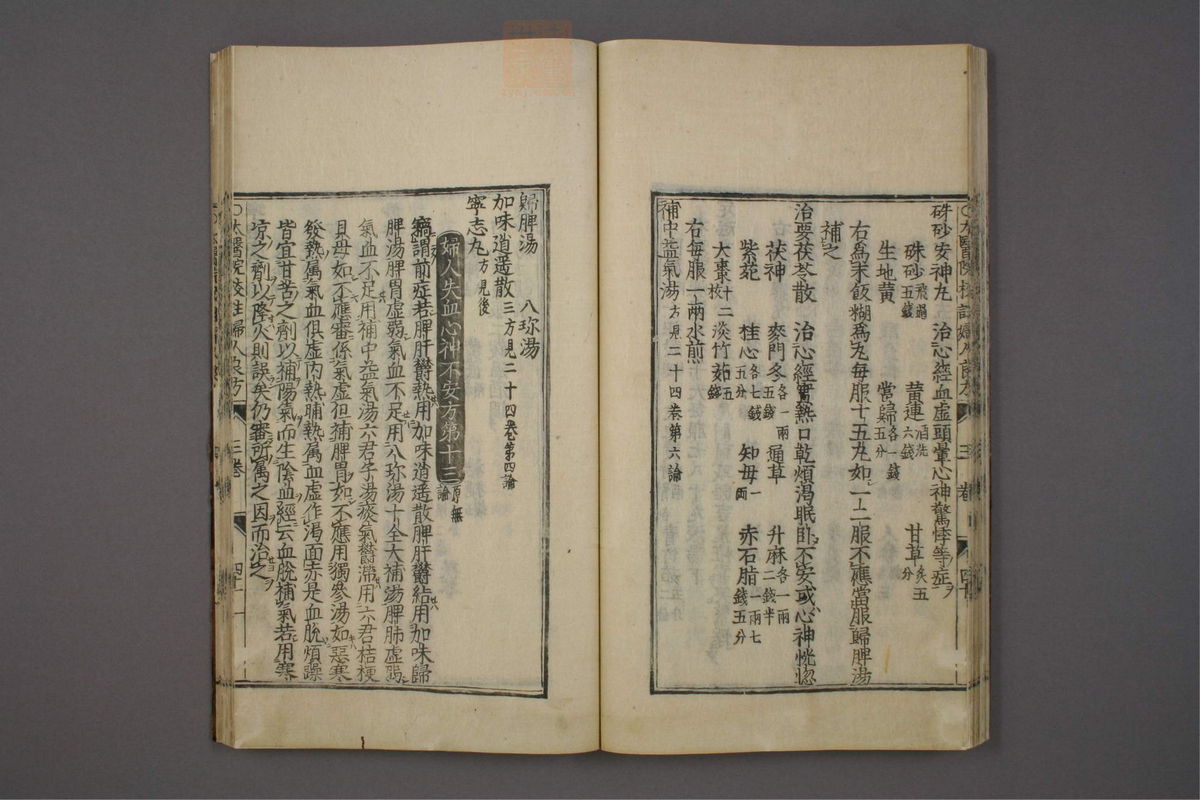 硃砂安神丸　治心經血虛頭暈心神驚悸等症
硃砂飛過五錢　黃連酒洗六錢　甘草炙五分
生地黃　當歸各一錢五分
右為末飯糊為丸每服十五丸如一二服不應當服歸脾湯
補之
治要茯苓散　治心經實熱口乾煩渴眠臥不安或心神恍惚
茯神　麥門冬各一兩五錢　通草　升麻各一兩二錢半
紫菀　桂心各七錢五分　知母一兩　赤石脂一兩七錢五分
大棗十二枚　淡竹茹五錢
右每服一兩水煎
補中益氣湯方見二十四卷第六論
歸脾湯　八珍湯
加味逍遙散三方見二十四卷第四論
寧志丸方見後
婦人失血心神不安方第十三原無論
竊謂前症若脾肝鬱熱用加味逍遙散脾肝鬱結用加味歸
脾湯脾胃虛弱氣血不足用八珍湯十全大補湯脾肺虛弱
氣血不足用補中益氣湯六君子湯痰氣鬱滯用六君桔梗
貝母如不應審係氣虛但補脾胃如不應用獨參湯如惡寒
發熱属氣血俱虛內熱晡熱属血虛作渴面赤是血脫煩躁
皆宜甘苦之劑以補陽氣而生陰血經云血脫補氣若用寒
凉之劑以降火則誤矣仍審所属之因而治之
〇太醫院校註婦人良方　三卷　四十一